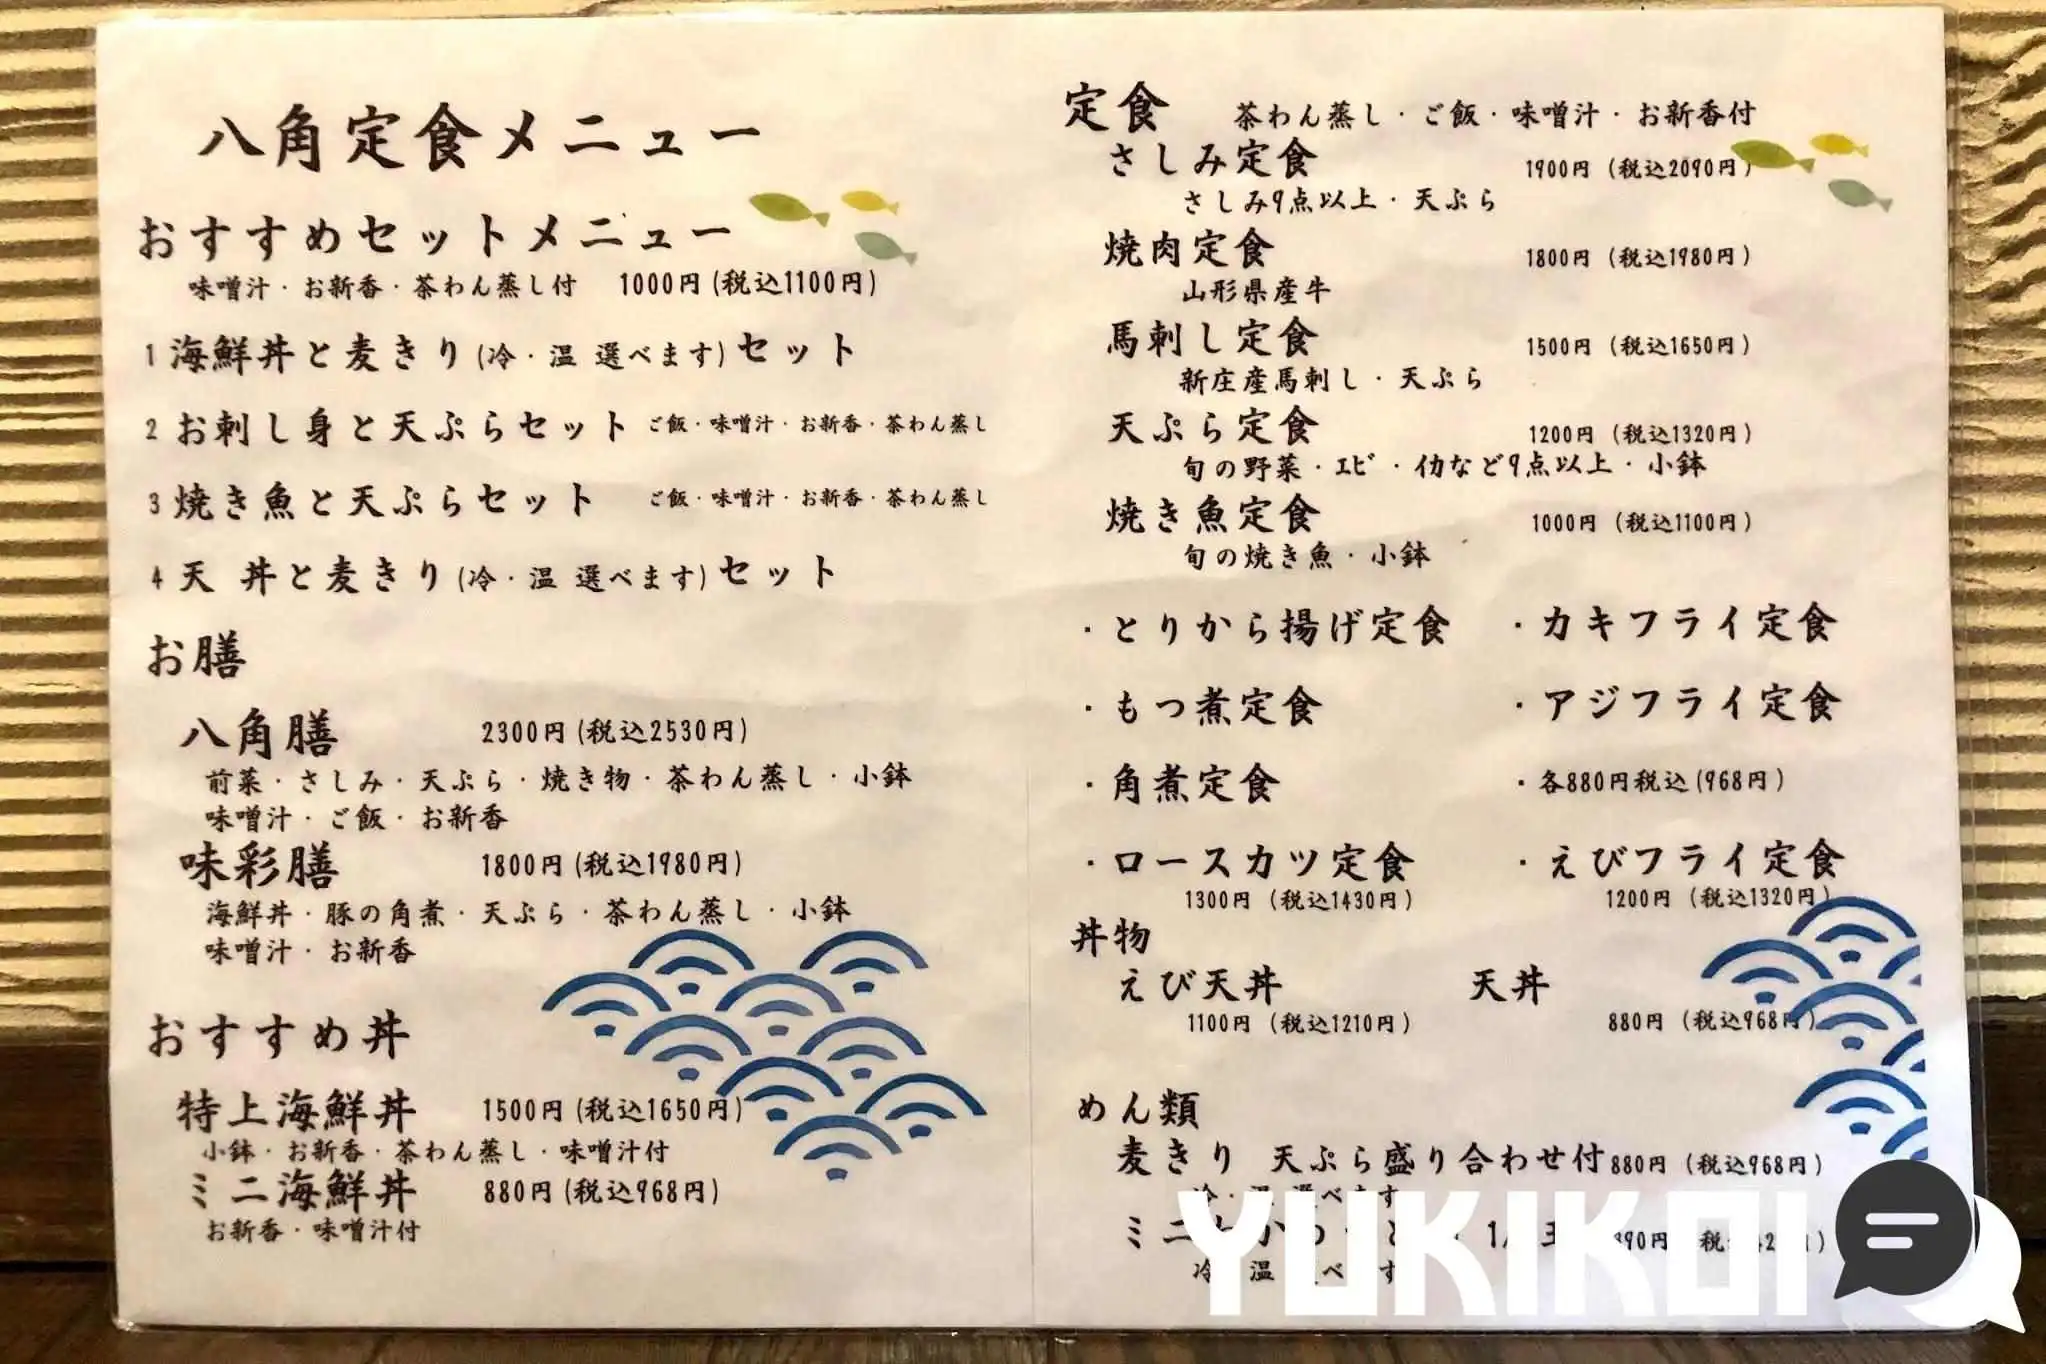 八角定食メニュー
おすすめセットメニュー
味噌汁・お新香・茶わん蒸し付 1000円(税込1100円)
1 海鮮丼と麦きり(冷・温 選べます)セット
2 お刺し身と天ぷらセット ご飯・味噌汁・お新香・茶わん蒸し
3 焼き魚と天ぷらセット ご飯・味噌汁・お新香・茶わん蒸し
4 天 丼と麦きり(冷・温 選べます)セット
お膳
八角膳 2300円(税込2530円)
前菜・さしみ・天ぷら・焼き物・茶わん蒸し・小鉢
味噌汁・ご飯・お新香
味彩膳 1800円(税込1980円)
海鮮丼・豚の角煮・天ぷら・茶わん蒸し・小鉢
味噌汁・お新香
おすすめ丼
特上海鮮丼 1500円(税込1650円)
小鉢・お新香・茶わん蒸し・味噌汁付
ミニ海鮮丼 880円(税込968円)
お新香・味噌汁付
定食 茶わん蒸し・ご飯・味噌汁・お新香付
さしみ定食 1900円 (税込2090円)
さしみ9点以上・天ぷら
焼肉定食 1800円 (税込1980円)
山形県産牛
馬刺し定食 1500円 (税込1650円)
新庄産馬刺し・天ぷら
天ぷら定食 1200円 (税込1320円)
旬の野菜・エビ・イカなど9点以上・小鉢
焼き魚定食 1000円 (税込1100円)
旬の焼き魚・小鉢
・とりから揚げ定食 ・カキフライ定食
・もつ煮定食 ・アジフライ定食
・角煮定食 ・各880円税込(968円)
・ロースカツ定食 ・えびフライ定食
1300円 (税込1430円) 1200円 (税込1320円)
丼物
えび天丼 天丼
1100円 (税込1210円) 880円 (税込968円)
めん類
麦きり 天ぷら盛り合わせ付 880円 (税込968円)
冷・温 選べます
ミニ
冷 温 べ す
YUKIKOI